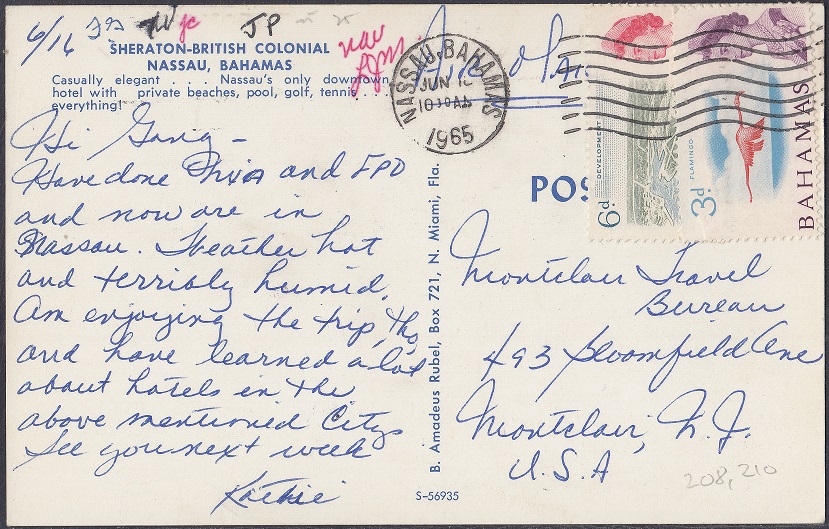 6/16
JP
SHERATON-BRITISH COLONIAL
NASSAU, BAHAMAS
Casually elegant . . . Nassau's only downtown
hotel with private beaches, pool, golf, tennis . . .
everything!
Hi
Have done and FPO
and now are in
Nassau. Weather hot
and terribly humid.
Am enjoying the trip, tho,
and have learned a lot
about hotels in the
above mentioned Citys
See you next week
Kathie
S-56935
B. Amadeus Rubel, Box 721, N. Miami, Fla.
NASSAU, BAHAMAS
JUN 16
10 30 AM
1965
POS
DEVELOPMENT
6d.
FLAMINGO
3d.
BAHAMAS
Montclair Travel
Bureau
493 Bloomfield Ave
Montclair, N.J.
U.S.A
208, 210